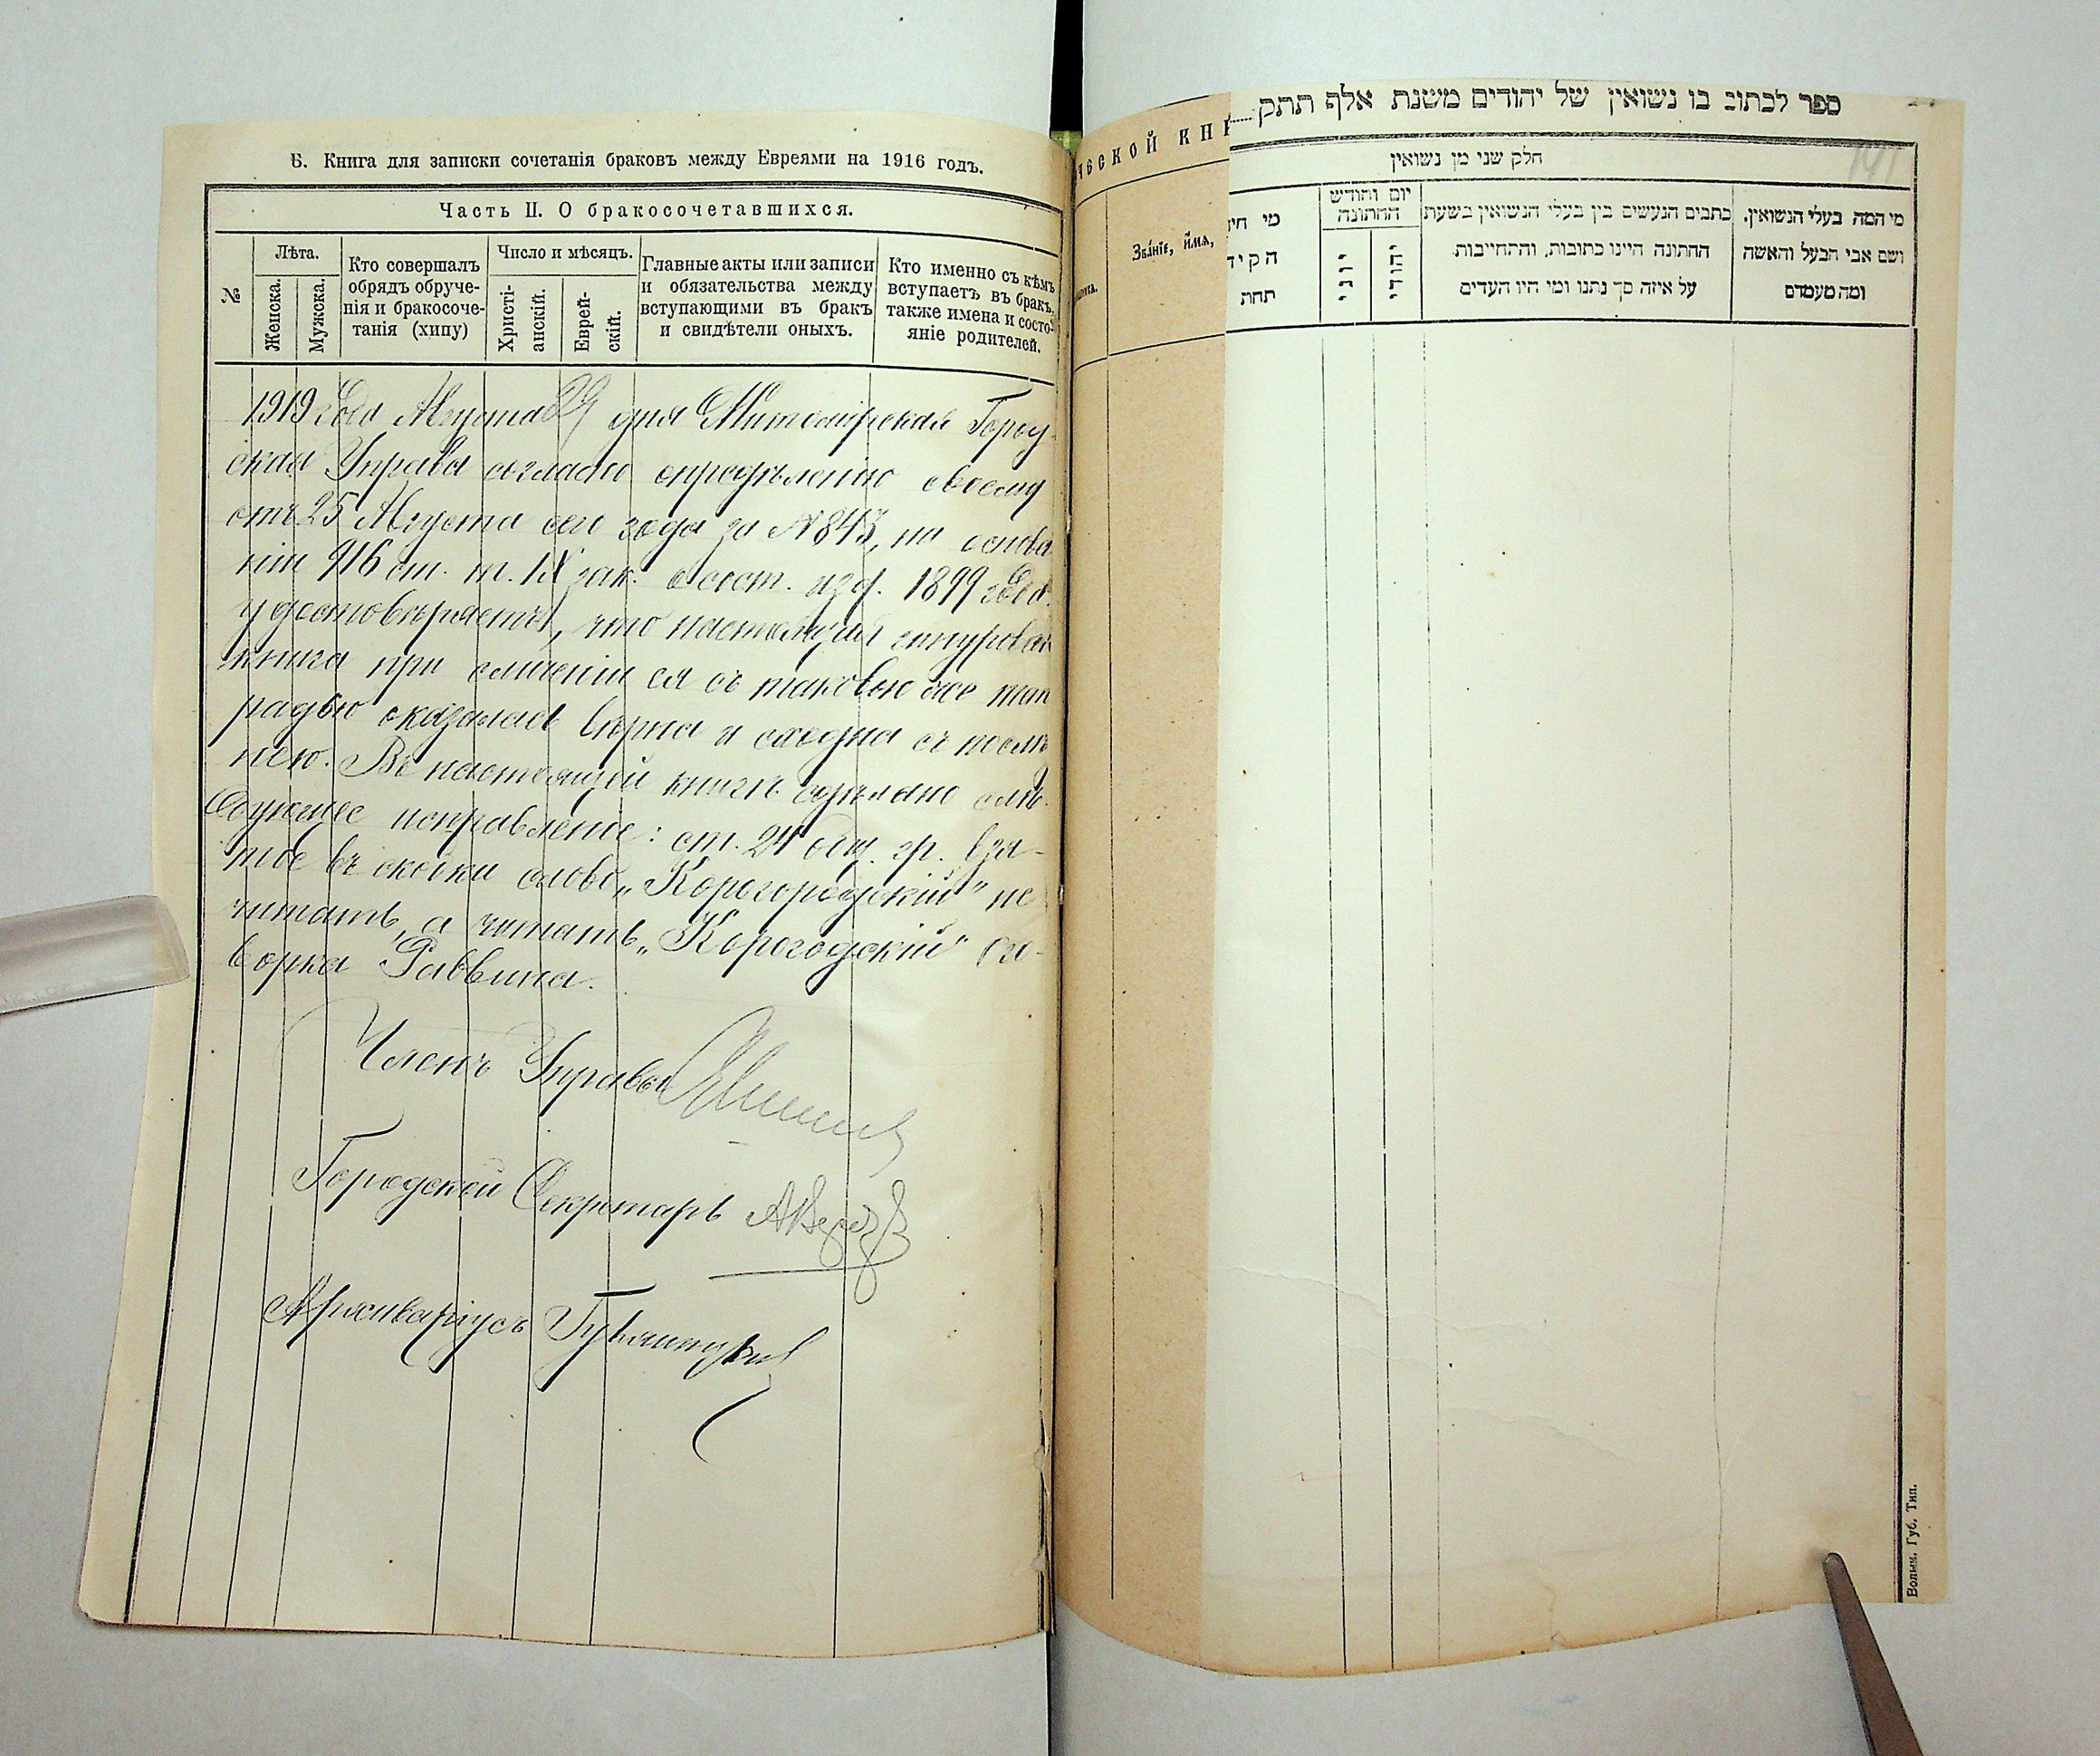 Б. Книга для записки сочетанія браковъ между Евреями на 1916 годъ.
Часть II. О бракосочетавшихся.
№
Лѣта.
Женска.
Мужска.
Кто совершалъ
обрядъ обруче-
нія и бракосоче-
танія (хипу)
Число и мѣсяцъ.
Христі-
анскій.
Еврей-
скій.
Главные акты или записи
и обязательства между
вступающими въ бракъ
и свидѣтели оныхъ.
Кто именно съ кѣмъ
вступаетъ въ бракъ,
также имена и состо-
яніе родителей.
1919 года Августа 29 дня Житомірская Город-
ская Управа согласно опредѣленію своему
отъ 25 Августа сего года за № 843, на основа
ніи 916 ст. т. IX зак. о сост. изд. 1899 года
удостовѣряетъ, что настоящая шнуровая
книга при сличеніи ея съ таковою же тет
радью оказалась вѣрна и сходна съ послѣд
нею. Въ настоящей книгѣ сдѣлано слѣ-
дующее исправленіе: ст. 24 общ. гр. взя-
тое въ скобки слово „Корогородскій" не
читать, а читать „Корогодскій" ого-
ворка Раввина.
Членъ Управы
Городской Секретарь
Архиваріусъ
ческой кни
Зва́нїе, и҆́мѧ,
ספר לכתוב בו נשואין של יהודים משנת אלף תתק
חלק שני מן נשואין
מי המה בעלי הנשואין,
ושם אבי הבעל והאשה
ומה מעמדם
כתבים הנעשים בין בעלי הנשואין בשעת
החתונה היינו כתובות, והתחייבות
על איזה סך נתנו ומי היו העדים
יום וחודש
החתונה
יהודי
יוני
מי חי
הקיד
תחת
Волын. Губ. Тип.